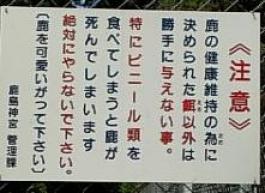 《注意》
鹿の健康維持の為に
決められた餌以外は
勝手に与えない事。
特にビニール類を
食べてしまうと鹿が
死んでしまいます
絶対にやらないで下さい。
〔鹿を可愛いがって下さい〕
鹿島神宮 管理課